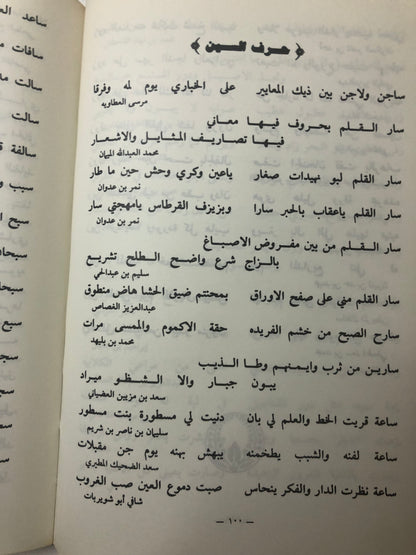 ساعد الع
﴿ حرف السين ﴾
ساجن ولاجن بين ذيك المعابير على الخباري يوم لمه وفرقا
مرسى العطاويه
سار القلم بحروف فيها معاني
فيها تصاريف المثايل والاشعار
محمد العبدالله
سار القلم لبو نهيدات صغار ياعين وكري وحش حين ما طار
نمر بن عدوان
سار القلم ياعقاب بالحبر سارا وبزيزف القرطاس يامهجتي سار
نمر بن عدوان
سار القلم من بين مفروض الاصباغ
بالزاج شرع واضح الطلح تشريع
سليم بن عبدالحي
سار القلم مني على صفح الاوراق بمحتتم ضيق الحشا هاض منطوق
عبدالعزيز الغصاص
سارح الصبح من خشم الفريده حقة الاكموم والممسى مرات
محمد بن بليهد
سارين من ثرب وايمنهم وطا الذيب
يبون جبار والا الشظو ميراد
سعد بن مزيين العضياني
ساعة قريت الخط والعلم لي بان دنيت لي مسطورة بنت مسطور
سليمان بن ناصر بن شريم
ساعة لفنه والشبب يطخمنه يبهش بهنه يوم جن مقبلات
سعد الضحيك المطيري
ساعة نظرت الدار والفكر ينحاس صبت دموع العين صب الغروب
شافي أبو شويربات
— ١٠٠ —
ساقات م
سالت ما
سالت
سالفة ق
سبب و
سبح ال
سبحان
سبحا